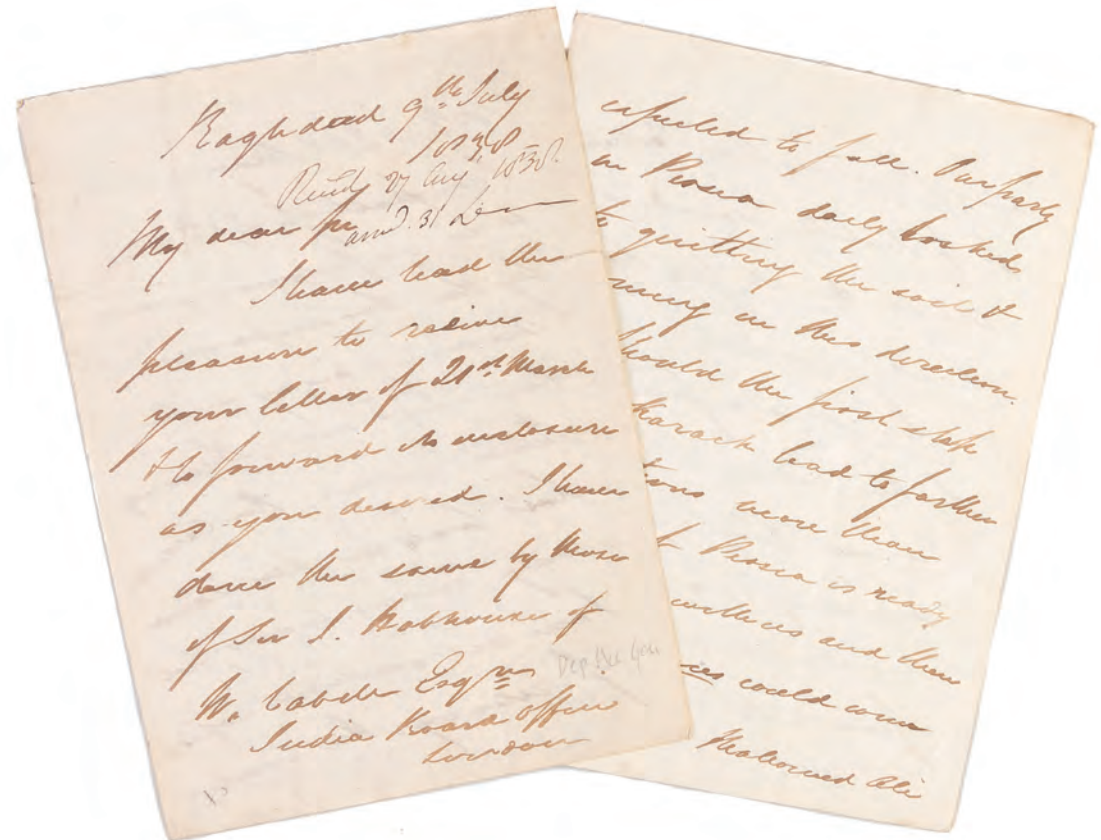 Baghdad 9th July
1838
Recd 27 Aug 1838.
ansd. 31 Do
My dear Sir
I have had the
pleasure to receive
your letter of 21st March
& to forward its enclosure
as you desired. I have
done the same by those
of Sir J. Hobhouse of
W. Cabell Esqre
India Board Office
London
expected to fall. Our party
in Persia daily looked
to quitting the soil &
in this direction.
should the first state
Karack lead to further
more than
Persia is ready
and then
could come
Mahomed Ali